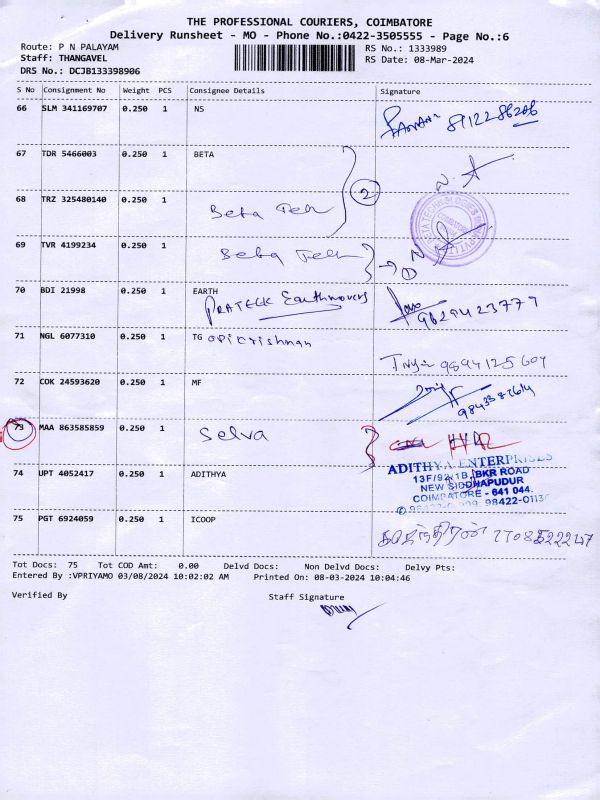 THE PROFESSIONAL COURIERS, COIMBATORE
Delivery Runsheet - MO - Phone No.:0422-3505555 - Page No.:6
Route: P N PALAYAM
RS No.: 1333989
Staff: THANGAVEL
RS Date: 08-Mar-2024
DRS No.: DCJB133398906
S No Consignment No Weight PCS Consignee Details Signature
66 SLM 341169707 0.250 1 NS
67 TDR 5466003 0.250 1 BETA
2
68 TRZ 325480140 0.250 1 Beta Tech
69 TVR 4199234 0.250 1 Beta Tech
1
70 BDI 21998 0.250 1 EARTH
PRATEEK Earthmovers
9629423779
71 NGL 6077310 0.250 1 TG opikrishnan
9894125604
72 COK 24593620 0.250 1 MF
73 MAA 863585859 0.250 1 Selva
74 UPT 4052417 0.250 1 ADITHYA
ADITHYA ENTERPRISES
13F/92/1B, BKR ROAD
NEW SIDDHAPUDUR
COIMBATORE - 641 044.
75 PGT 6924059 0.250 1 ICOOP
Tot Docs: 75 Tot COD Amt: 0.00 Delvd Docs: Non Delvd Docs: Delvy Pts:
Entered By :VPRIYAMO 03/08/2024 10:02:02 AM Printed On: 08-03-2024 10:04:46
Verified By Staff Signature